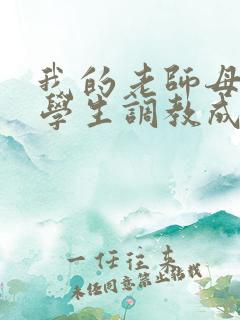 我的老師母
學生調教成
一任往來
未经同意禁止转载